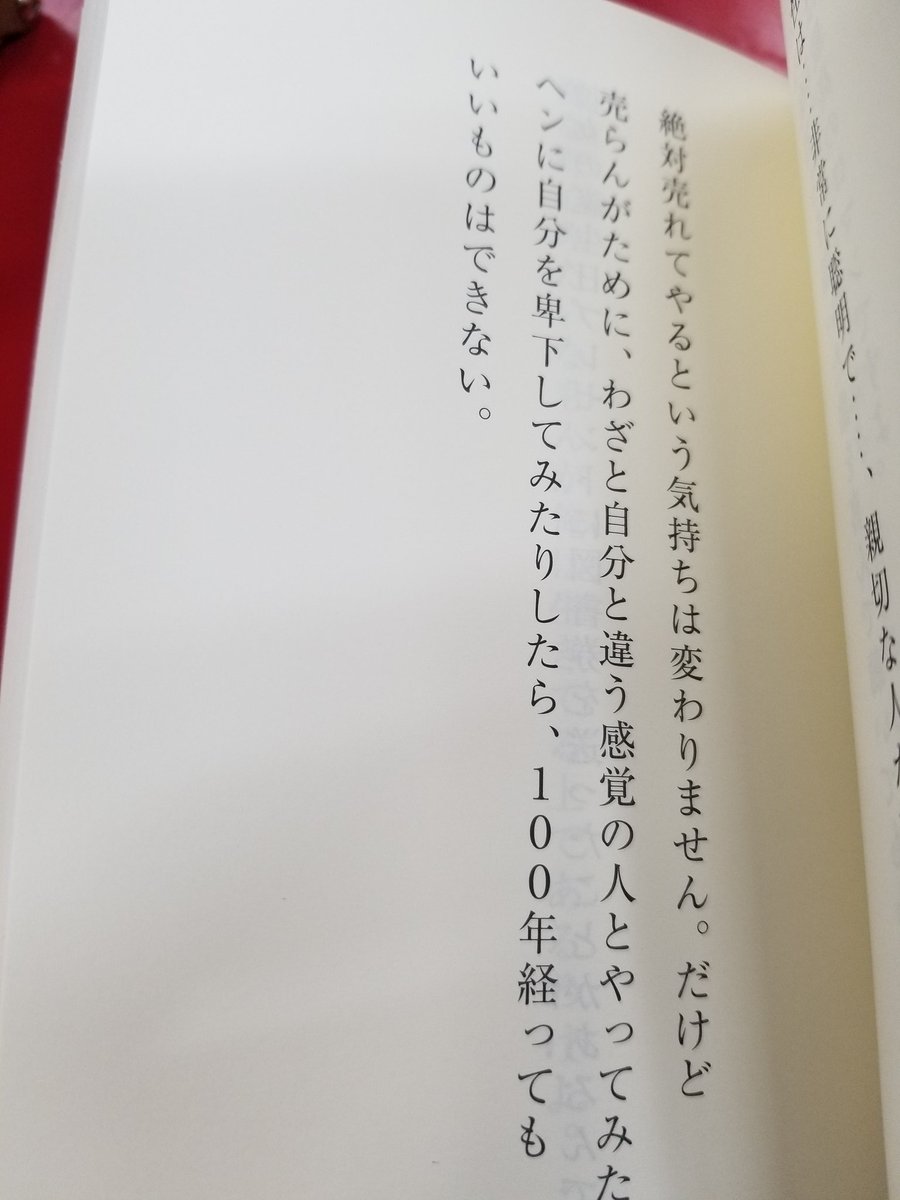 は…。非常に聡明で……、親切な人
絶対売れてやるという気持ちは変わりません。だけど
売らんがために、わざと自分と違う感覚の人とやってみた
ヘンに自分を卑下してみたりしたら、100年経っても
いいものはできない。